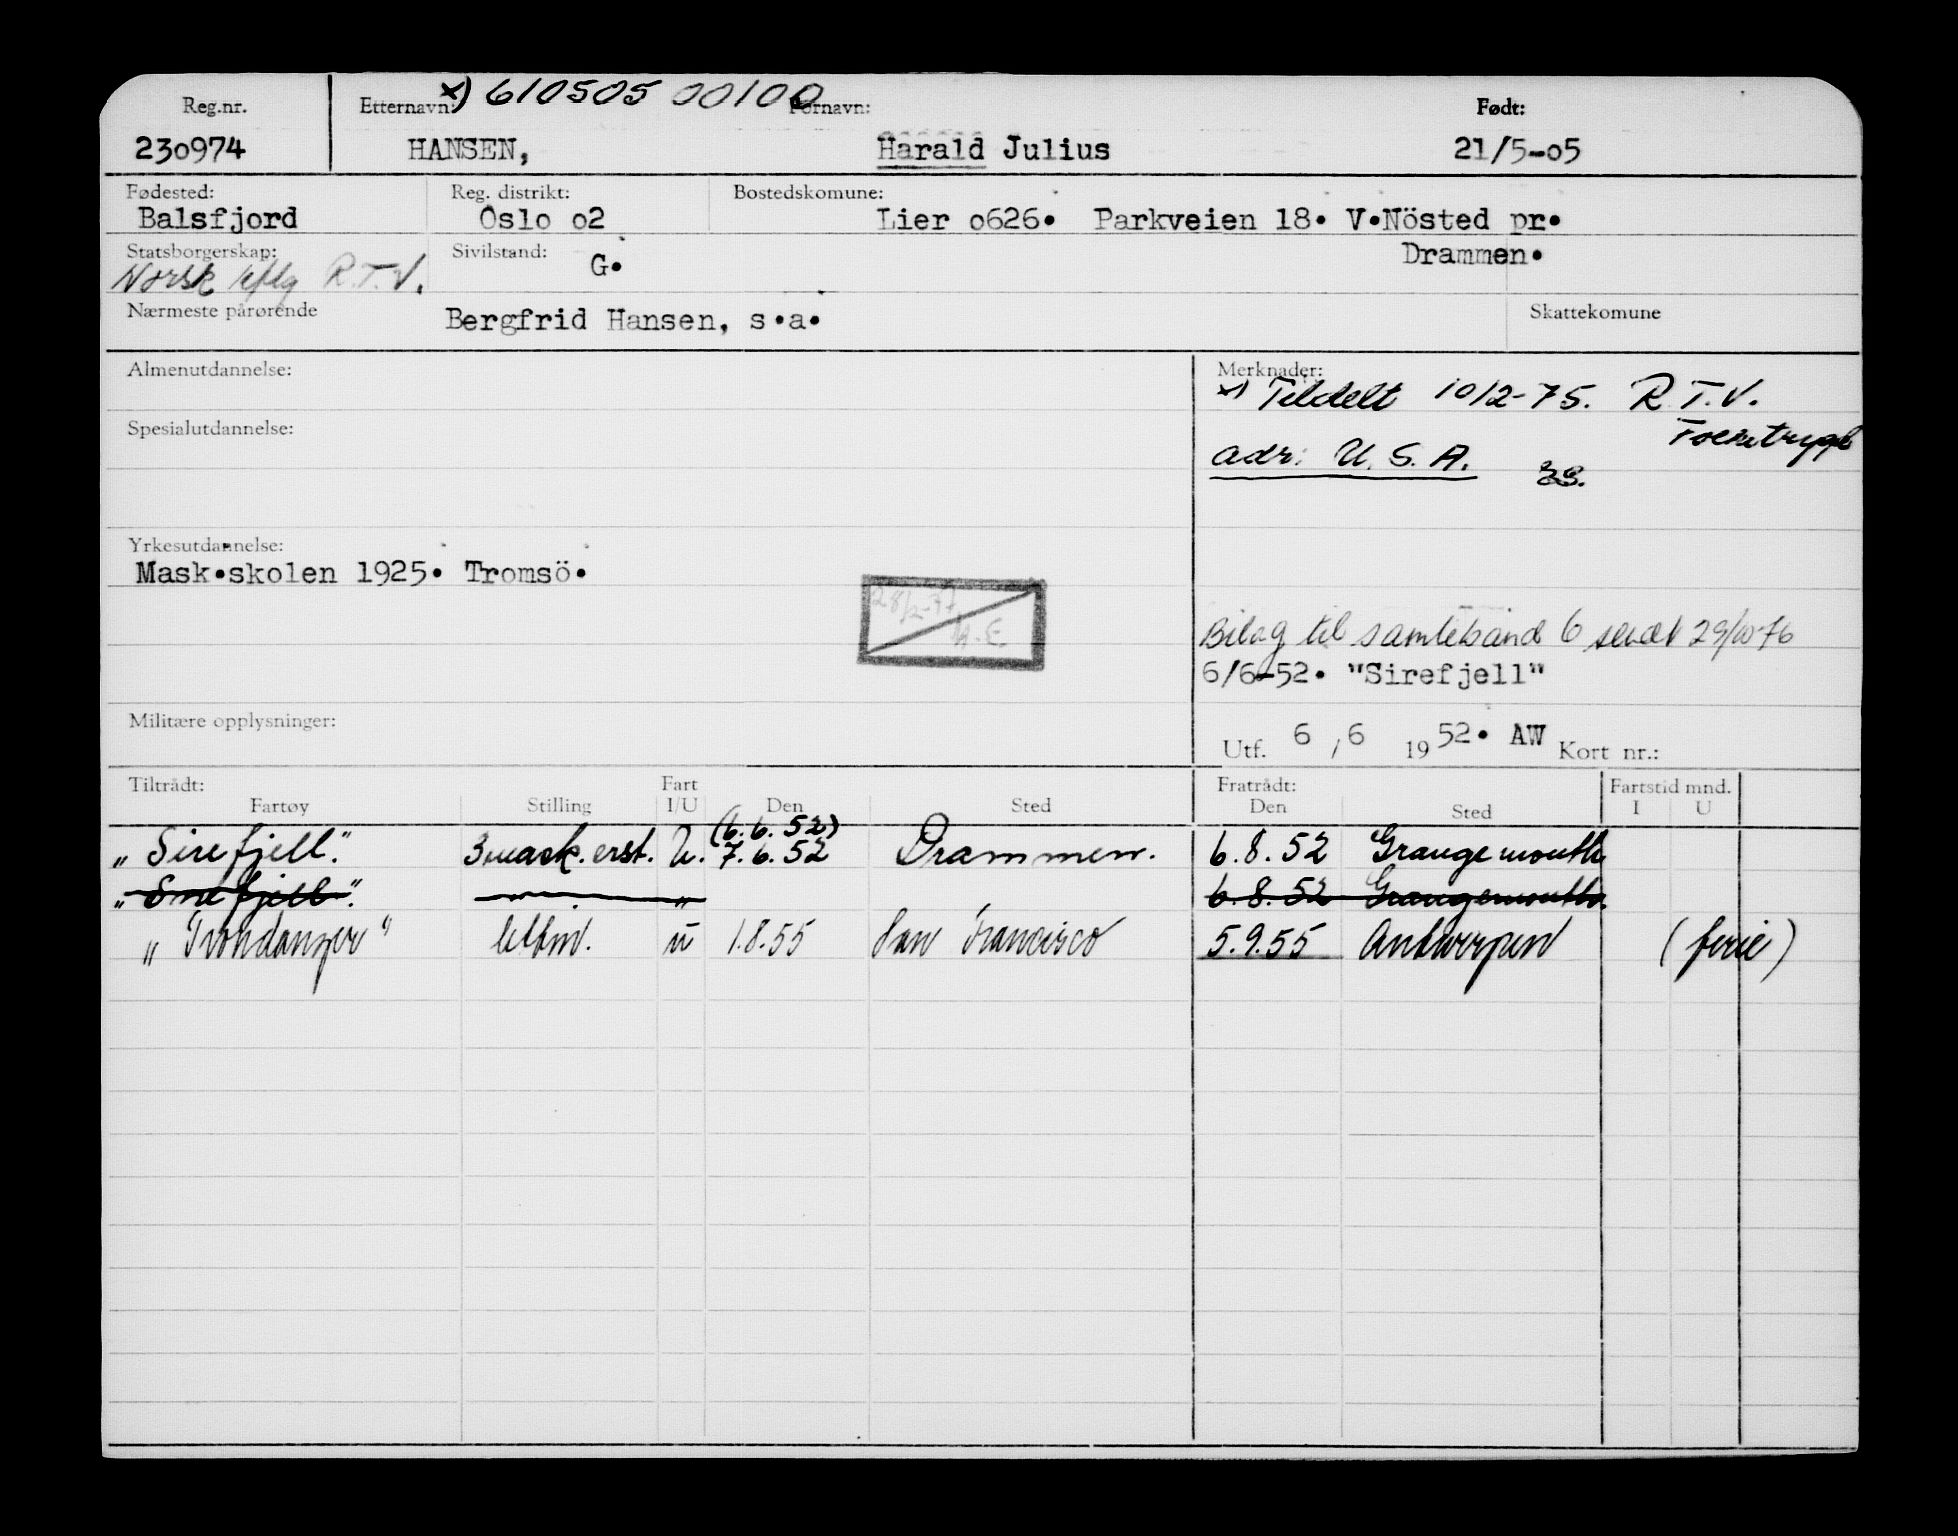 x) 610505 00100
Reg.nr. Etternavn: Fornavn: Født:
230974 HANSEN, Harald Julius 21/5-05
Fødested: Reg. distrikt: Bostedskomune:
Balsfjord Oslo 02 Lier 0626. Parkveien 18. V.Nösted pr.
Statsborgerskap: Sivilstand: Drammen.
Norsk iflg R.T.V. G.
Nærmeste pårørende Skattekomune
Bergfrid Hansen, s.a.
Almenutdannelse: Merknader:
x) Tildelt 10/2-75. R.T.V.
Folketrygd
Spesialutdannelse:
adr: U.S.A.
Yrkesutdannelse:
Mask.skolen 1925. Tromsö.
28/2-77
Bilag til samlebånd 6 sendt 29/10-76
6/6-52. "Sirefjell"
Militære opplysninger:
Utf. 6 / 6 1952. AW Kort nr.:
Tiltrådt: Fart Fratrådt: Fartstid mnd.
Fartøy Stilling I/U Den Sted Den Sted I U
(6.6.52)
"Sirefjell." 3 mask. U. 7.6.52 Drammen. 6.8.52 Grangemouth
"Sirefjell." " 6.8.52 Grangemouth.
"Trondanger" u 1.8.55 San Francisco 5.9.55 Antwerpen (ferie)